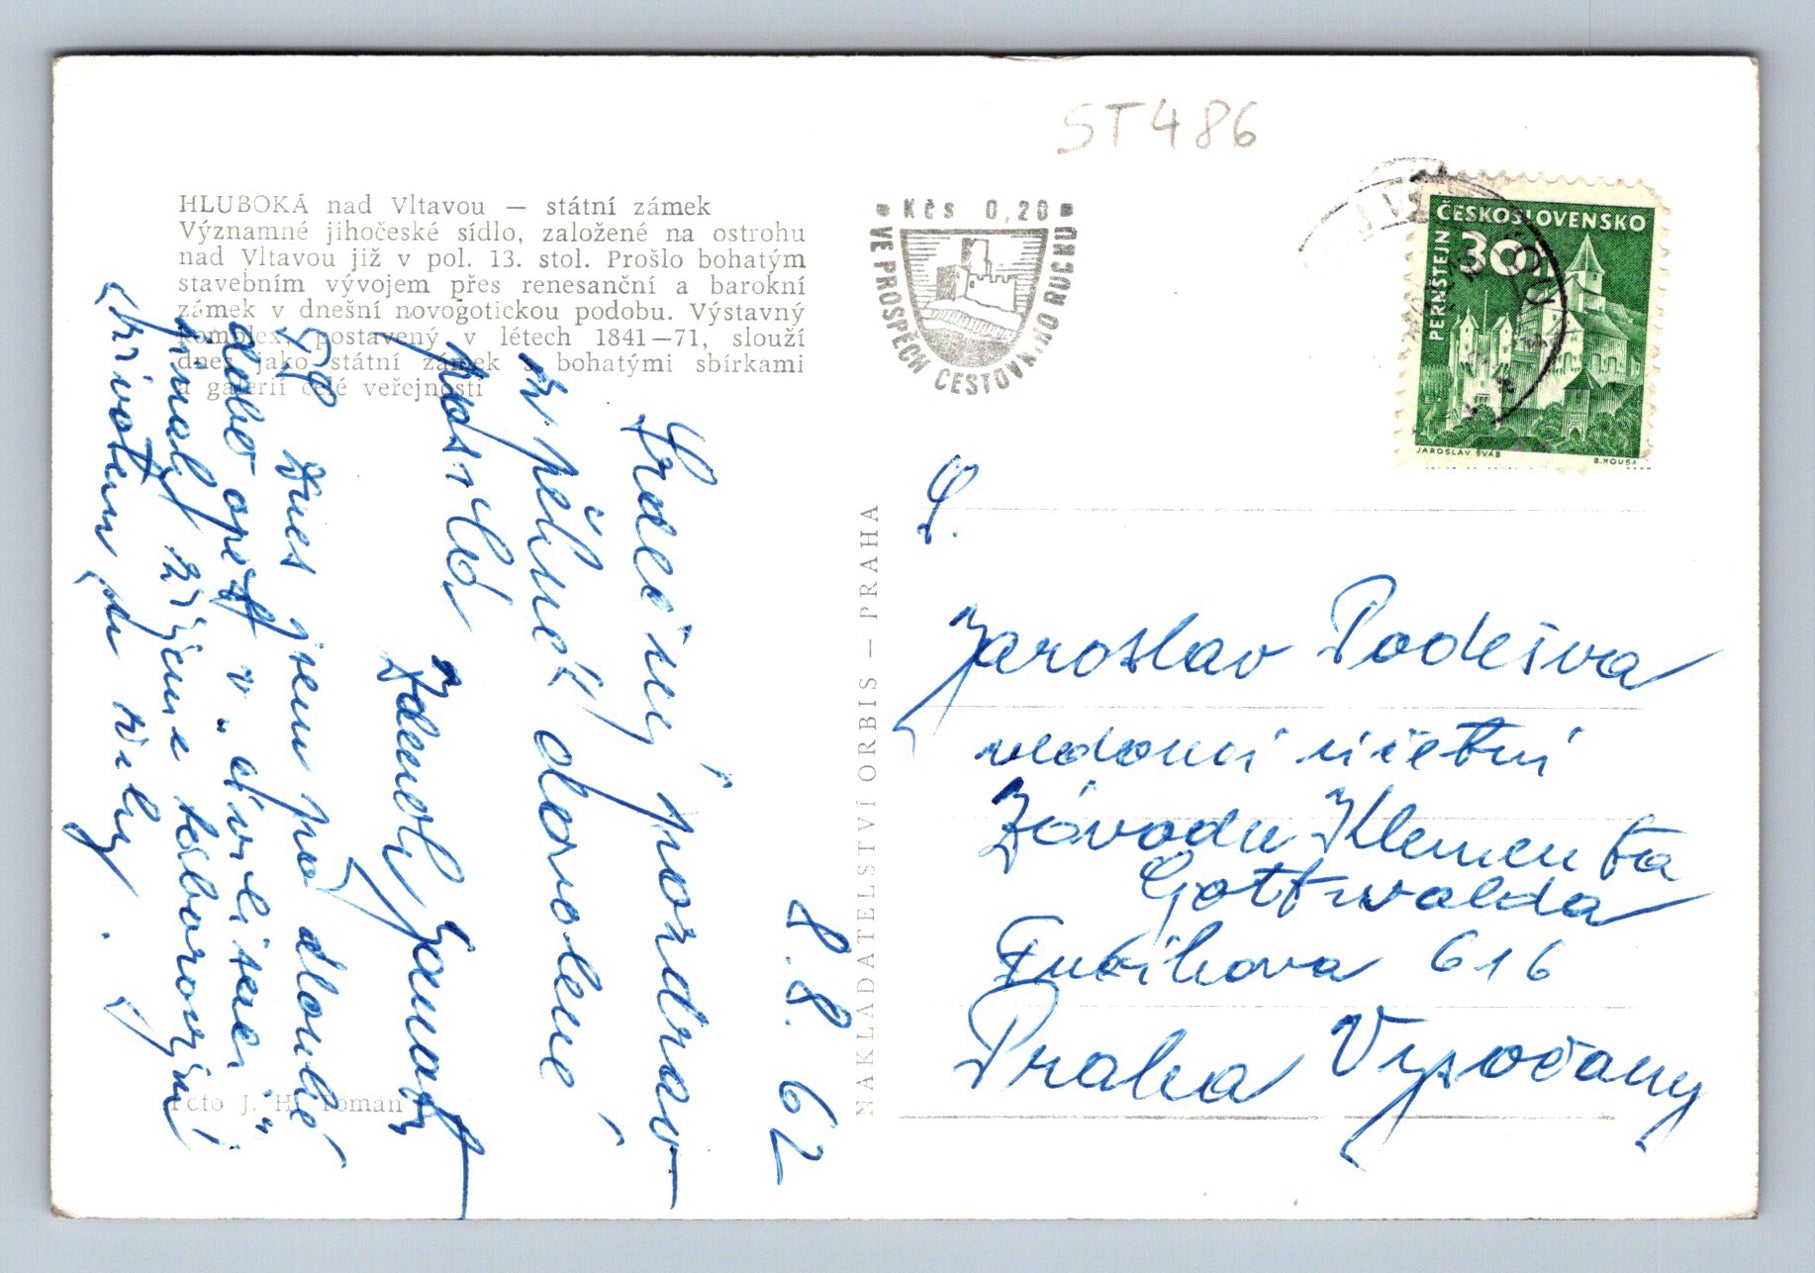 ST486
HLUBOKÁ nad Vltavou — státní zámek
Významné jihočeské sídlo, založené na ostrohu
nad Vltavou již v pol. 13. stol. Prošlo bohatým
stavebním vývojem přes renesanční a barokní
zámek v dnešní novogotickou podobu. Výstavný
komplex, postavený v létech 1841—71, slouží
dnes jako státní zámek s bohatými sbírkami
a galerií celé veřejnosti
Kčs 0,20
VE PROSPĚCH CESTOVNÍHO RUCHU
ČESKOSLOVENSKO
30h
PERNŠTEJN
JAROSLAV ŠVÁB
B. HOUSA
8. 8. 62
Srdečný pozdrav
z pěkné dovolené
posílá
Zdeněk
Dnes jsem po dlouhé
době opět v „civilisaci“
jinak žijeme táborovým
životem u vody.
Foto J. H. Toman
NAKLADATELSTVÍ ORBIS — PRAHA
S.
Jaroslav Podešva
vedoucí účetní
Závodu Klementa
Gottwalda
Fučíkova 616
Praha Vysočany